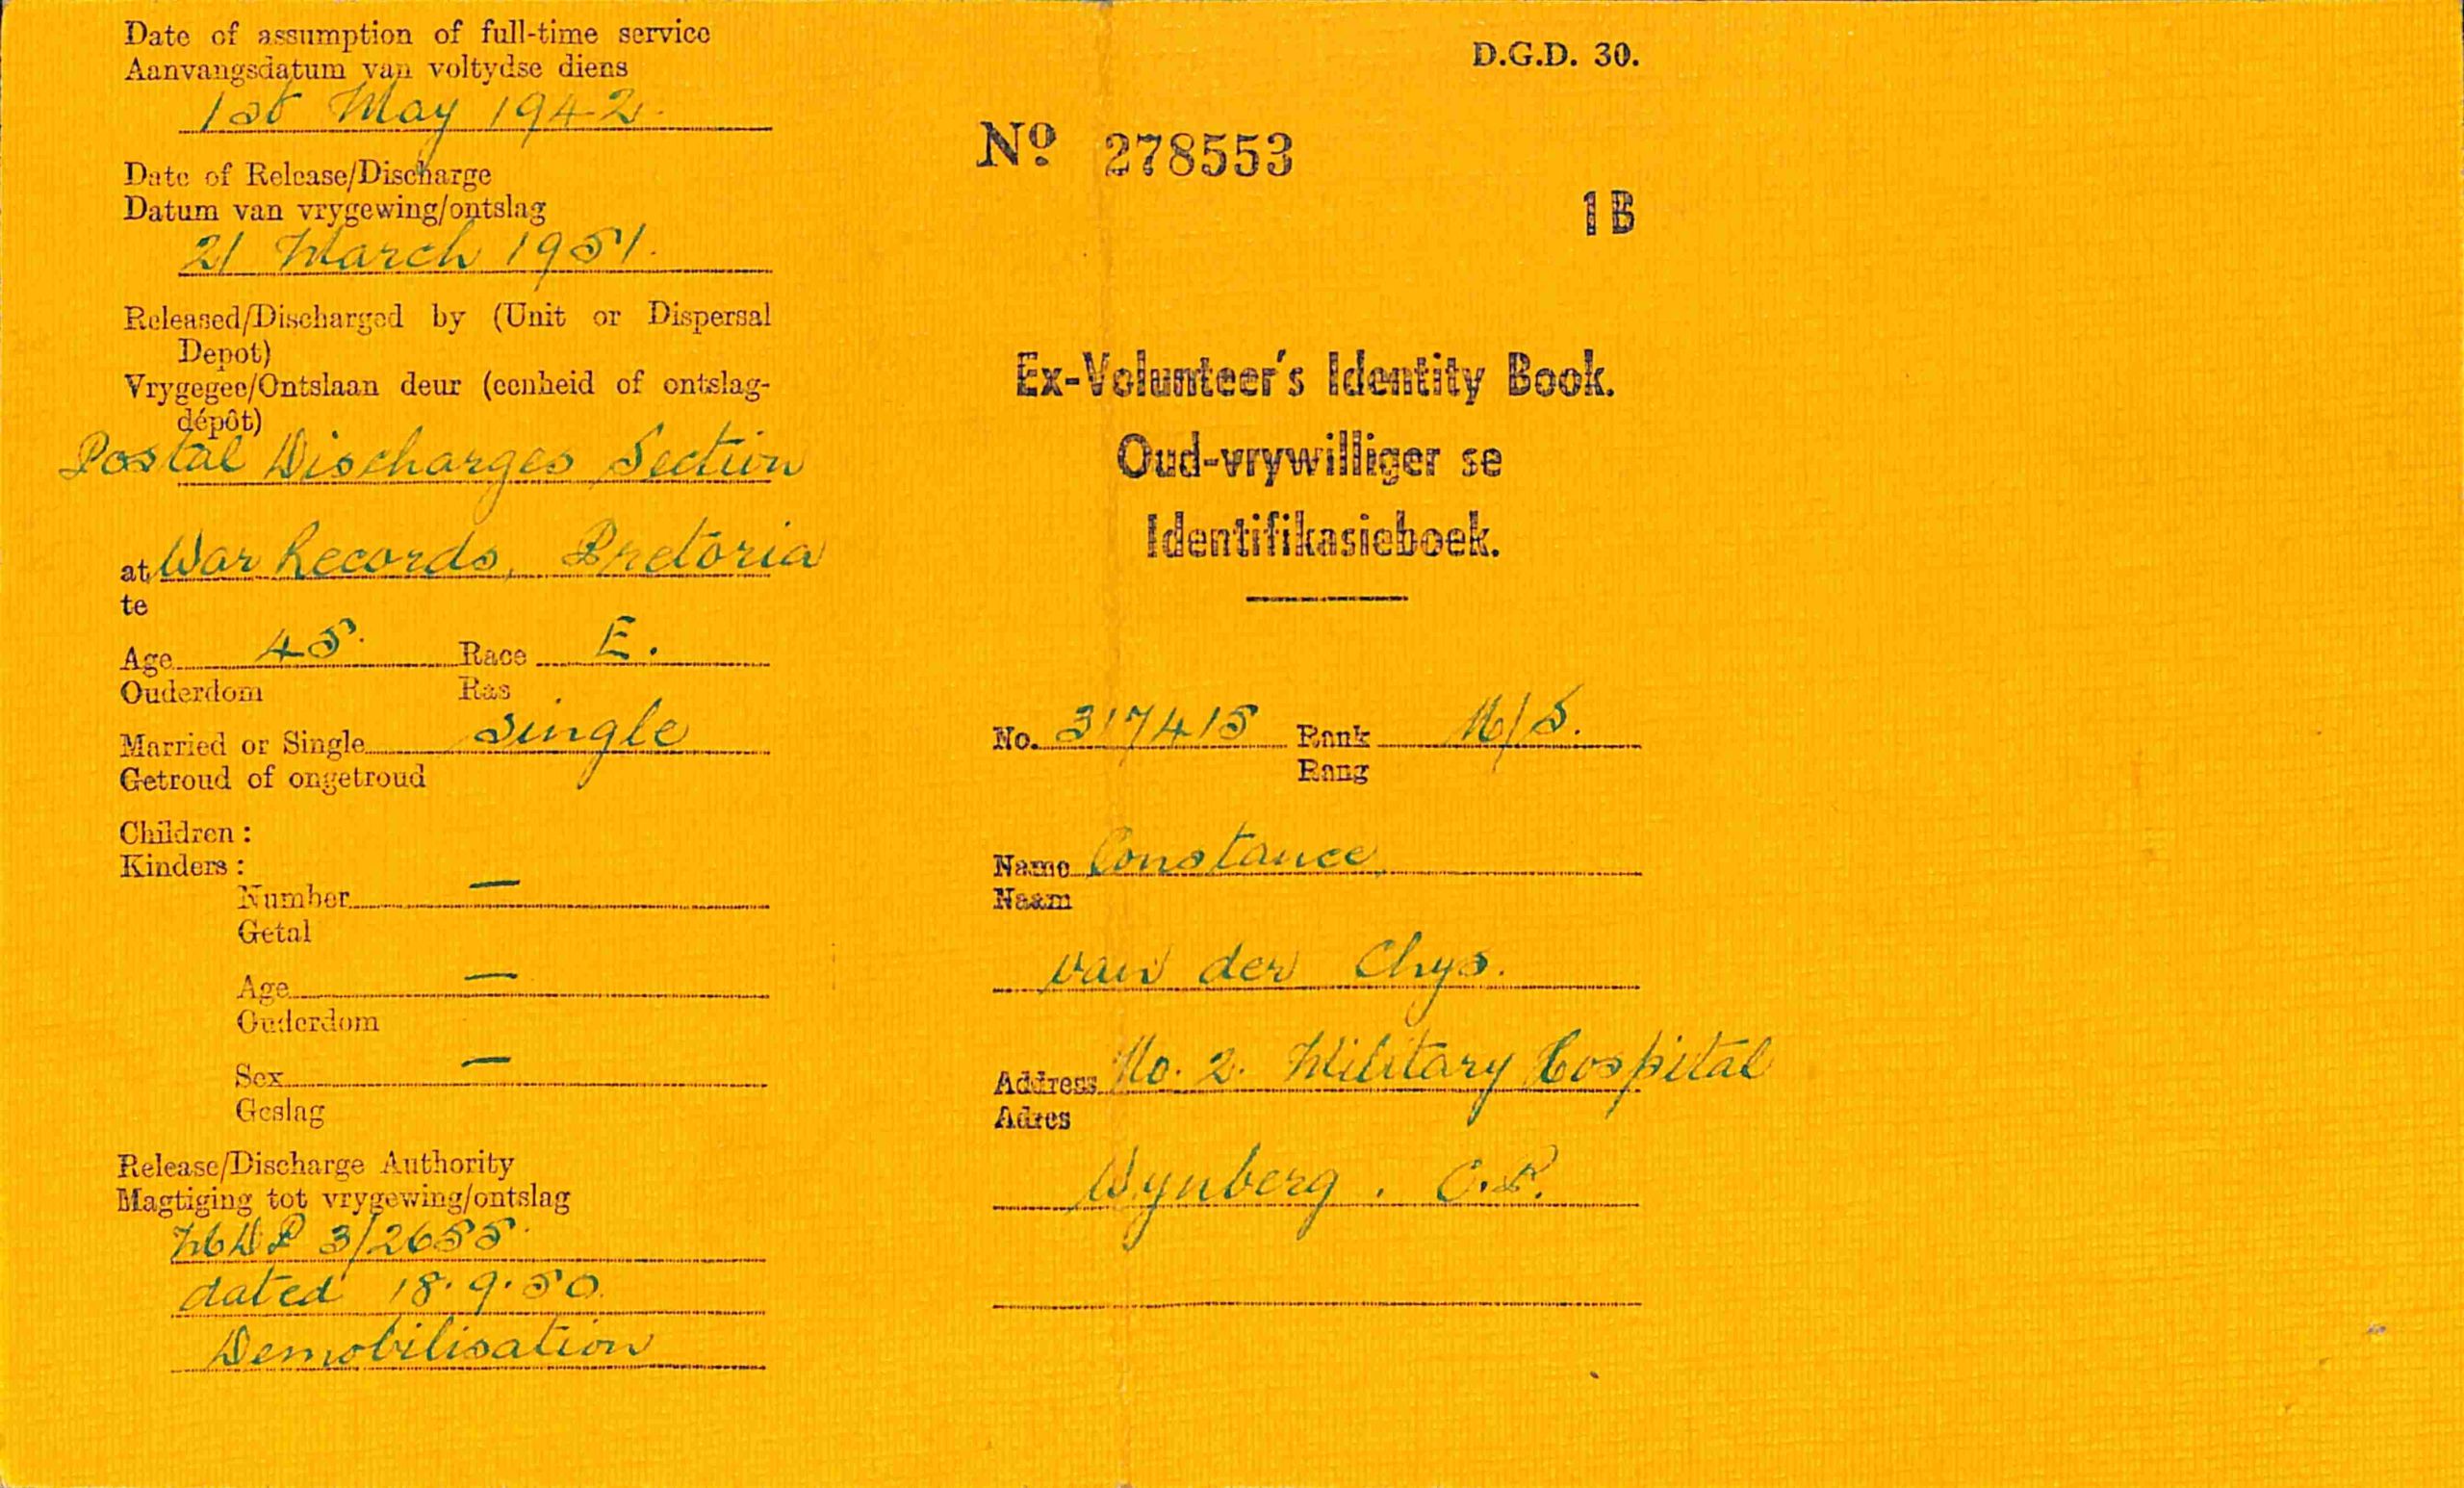 Date of assumption of full-time service
Aanvangsdatum van voltydse diens
1st May 1942.
Date of Release/Discharge
Datum van vrygewing/ontslag
21 March 1951.
Released/Discharged by (Unit or Dispersal
Depot)
Vrygegee/Ontslaan deur (eenheid of ontslag-
dépôt)
Postal Discharges Section
at War Records, Pretoria
te
Age 45. Race E.
Ouderdom Ras
Married or Single single
Getroud of ongetroud
Children :
Kinders :
Number —
Getal
Age —
Ouderdom
Sex —
Geslag
Release/Discharge Authority
Magtiging tot vrygewing/ontslag
3/2655.
dated 18.9.50.
Demobilisation
D.G.D. 30.
No. 278553
1B
Ex-Volunteer's Identity Book.
Oud-vrywilliger se
Identifikasieboek.
No. 317415 Rank N/S.
Rang
Name Constance,
Naam
van der Chys.
Address No. 2. Military Hospital
Adres
Wynberg. C.P.